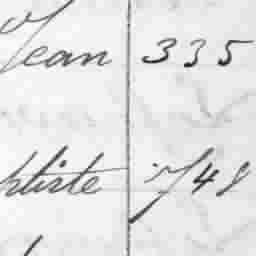 Jean 335
ptiste 748